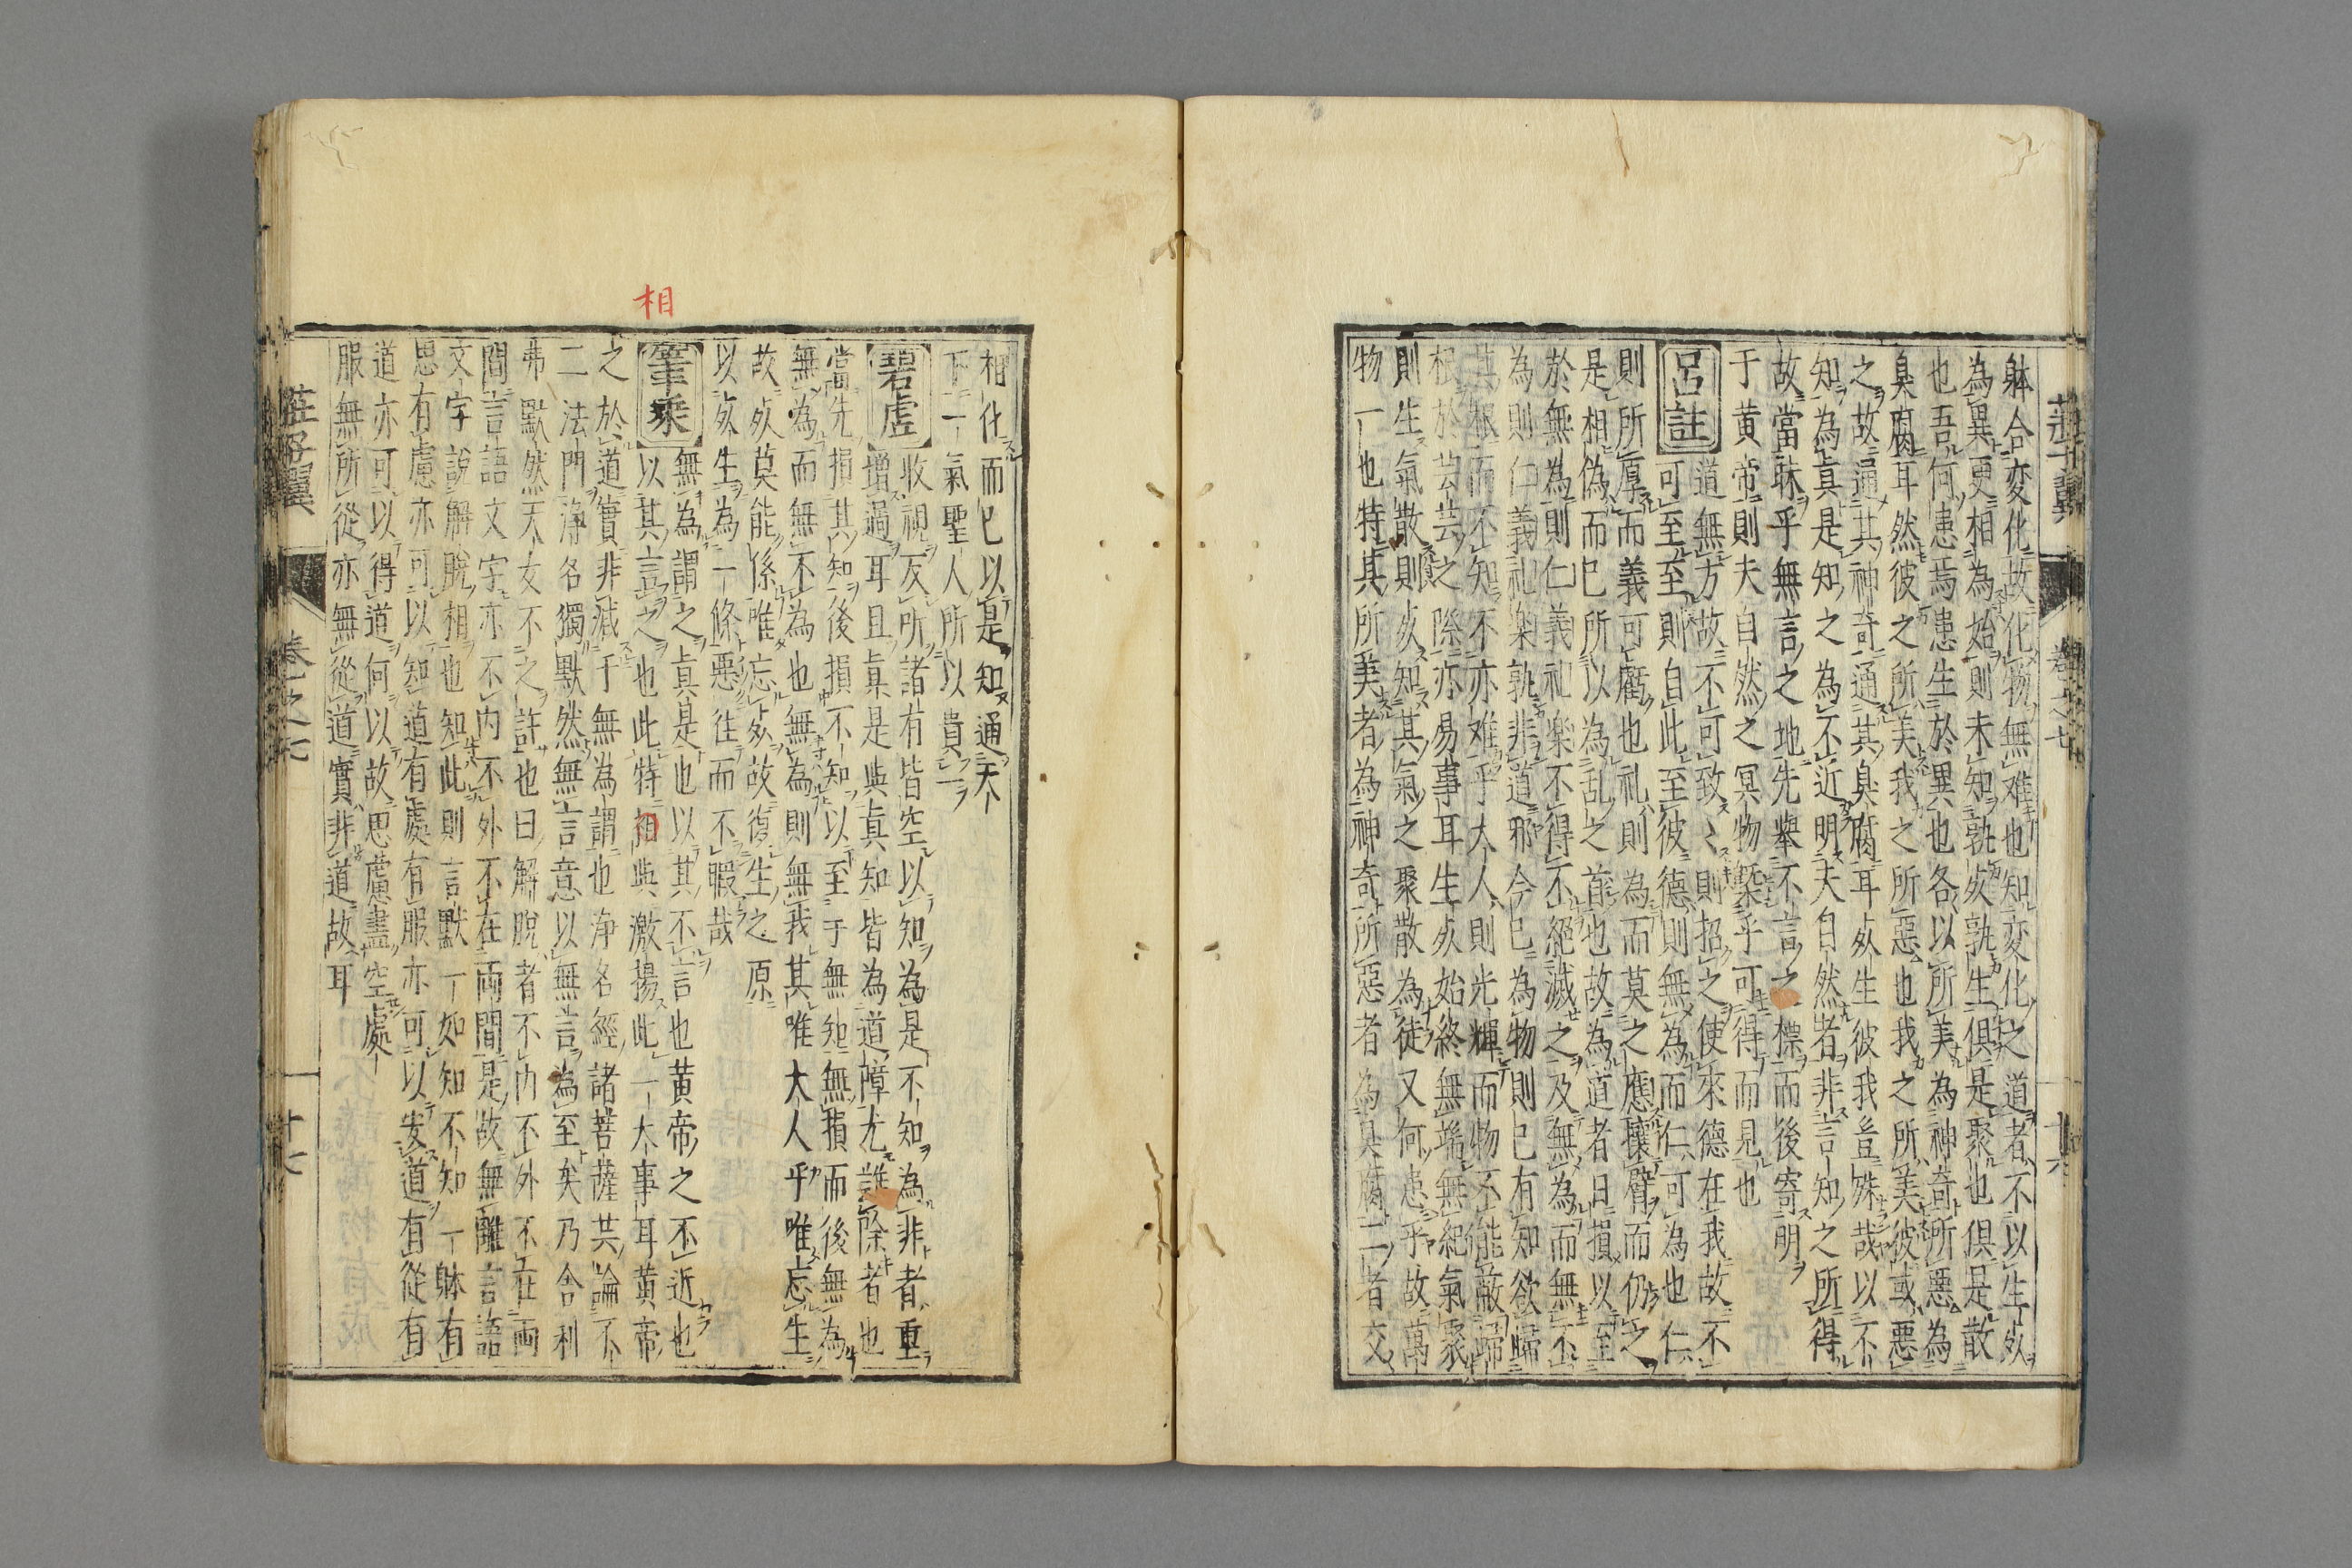 莊子翼 卷之七 十六
躰合変化故化物無难也知変化之道者不以生死
為異更相為始則未知孰死孰生俱是聚也俱是散
也吾何患焉患生於異也各以所美為神奇所惡為
臭腐耳然彼之所美我之所惡也我之所美彼或惡
之故通其神奇通其臭腐耳死生彼我豈殊哉以不
知為真是知之為不近明夫自然者非言知之所得
故當昧乎無言之地先舉不言之標而後寄明
于黄帝則夫自然之冥物槩乎可得而見也
呂註 道無方故不可致〻則招之使來德在我故不
可至至則自此至彼德則無為而仁可為也仁
則所厚而義可虧也礼則為而莫之應攘臂而仍之
是相偽而已所以為乱之首也故為道者日損以至
於無為則仁義礼楽不得不絕滅之及無為而無不
為則仁義礼楽孰非道邪今已為物則已有知欲歸
其根而不知不亦难乎大人則光輝而物不能蔽歸
根於芸芸之際亦易事耳生死始終無端無紀氣聚
則生氣散則死知其氣之聚散為徒又何患乎故萬
物一也特其所美者為神奇所惡者為臭腐二者交
相化而已以是知通天
下一氣聖人所以貴一
碧虚 收視反所諸有皆空以知為是不知為非者重
增過耳且真是與真知皆為道障尤誰除者也
當先損其知後損不知以至于無知無損而後無為
無為而無不為也無為則無我其唯大人乎唯忘生
故死莫能係唯忘死故復生之原
以死生為一條惡往而不暇哉
筆乗 無為謂之真是也以其不言也黄帝之不近也
以其言之也此特相與激揚此一大事耳黄帝
之於道實非减于無為謂也浄名經諸菩薩共論不
二法門浄名獨默然無言意以無言為至矣乃舎利
弗默然天女不之許也曰解脫者不内不外不在両
間言語文字亦不内不外不在両間是故無離言語
文字說解脫相也知此則言默一如知不知一躰有
思有慮亦可以知道有處有服亦可以安道有從有
道亦可以得道何以故思慮盡空處
服無所從亦無從道實非道故耳
莊子翼 卷之七 十七
相